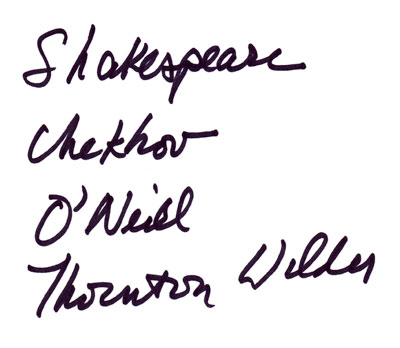 Shakespeare
Chekhov
O'Neill
Thornton Wilder